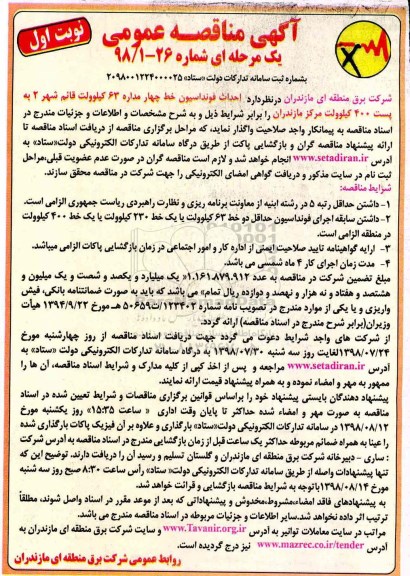 نوبت اول
آگهی مناقصه عمومی
یک مرحله ای شماره ۲۶-۹۸/۱
بشماره ثبت سامانه تدارکات دولت «ستاد» ۲۰۹۸۰۰۱۲۲۴۰۰۰۰۲۵
شرکت برق منطقه ای مازندران درنظردارد احداث فونداسیون خط چهار مداره ۶۳ کیلوولت قائم شهر ۲ به
پست ۴۰۰ کیلوولت مرکز مازندران را برابر شرایط ذیل و به شرح مشخصات و اطلاعات و جزئیات مندرج در
اسناد مناقصه به پیمانکار واجد صلاحیت واگذار نماید، که مراحل برگزاری مناقصه از دریافت اسناد مناقصه تا
ارائه پیشنهاد مناقصه گران و بازگشایی پاکت از طریق درگاه سامانه تدارکات الکترونیکی دولت«ستاد» به
آدرس www.setadiran.ir انجام خواهد شد و لازم است مناقصه گران در صورت عدم عضویت قبلی،مراحل
ثبت نام در سایت مذکور و دریافت گواهی امضای الکترونیکی را جهت شرکت در مناقصه محقق سازند.
شرایط مناقصه:
۱- داشتن حداقل رتبه ۵ در رشته ابنیه از معاونت برنامه ریزی و نظارت راهبردی ریاست جمهوری الزامی است.
۲- داشتن سابقه اجرای فونداسیون حداقل دو خط ۶۳ کیلوولت یا یک خط ۲۳۰ کیلوولت یا یک خط ۴۰۰ کیلوولت
در منطقه الزامی است.
۳- ارایه گواهینامه تایید صلاحیت ایمنی از اداره کار و امور اجتماعی در زمان بازگشایی پاکات الزامی میباشد.
۴- مدت زمان اجرای کار ۴ ماه شمسی می باشد.
مبلغ تضمین شرکت در مناقصه به عدد ۱.۱۶۱.۸۷۹.۹۱۲« یک میلیارد و یکصد و شصت و یک میلیون و
هشتصد و هفتاد و نه هزار و نهصد و دوازده ریال تمام،» می باشد که باید به صورت ضمانتنامه بانکی، فیش
واریزی و یا یکی از موارد مندرج در تصویب نامه شماره ۱۲۳۴۰۲/ت۵۰۶۵۹ هـ مورخ ۱۳۹۴/۹/۲۲ هیأت
وزیران(برابر شرح مندرج در اسناد مناقصه) ارائه گردد.
از شرکت های واجد شرایط دعوت می گردد جهت دریافت اسناد مناقصه از روز چهارشنبه مورخ
۱۳۹۸/۰۷/۲۴ لغایت روز سه شنبه ۱۳۹۸/۰۷/۳۰ به درگاه سامانه تدارکات الکترونیکی دولت «ستاد» به
آدرس www.setadiran.ir مراجعه و پس از اخذ کپی از کلیه مدارک و شرایط اسناد مناقصه، آن ها را
ممهور به مهر و امضاء نموده و به همراه پیشنهاد قیمت ارائه نمایند.
پیشنهاد دهندگان بایستی پیشنهاد خود را براساس قوانین برگزاری مناقصات و شرایط تعیین شده در اسناد
مناقصه به صورت مهر و امضاء شده حداکثر تا پایان وقت اداری « ساعت ۱۵:۳۵» روز یکشنبه مورخ
۱۳۹۸/۰۸/۱۲ در سامانه تدارکات الکترونیکی دولت«ستاد» بارگذاری و علاوه بر آن فیزیک پاکات بارگذاری شده
را عینا به همراه ضمائم مربوطه حداکثر یک ساعت قبل از زمان بازگشایی مندرج در اسناد مناقصه به آدرس شرکت
: ساری - دبیرخانه شرکت برق منطقه ای مازندران و گلستان تسلیم و رسید آن را دریافت دارند. توضیح این که
تنها پیشنهادات واصله از طریق سامانه تدارکات الکترونیکی دولت« ستاد» رأس ساعت ۸:۳۰ صبح روز سه شنبه
مورخ ۱۳۹۸/۰۸/۱۴ باتوجه به شرایط مناقصه بازگشایی و قرائت خواهد شد.
به پیشنهادهای فاقد امضاء،مشروط،مخدوش و پیشنهاداتی که بعد از موعد مقرر در اسناد واصل شوند، مطلقاً
ترتیب اثر داده نخواهد شد.سایر اطلاعات و جزئیات مربوطه در اسناد مناقصه مندرج می باشد.
مراتب در سایت معاملات توانیر به آدرس www.Tavanir.org.ir و سایت شرکت برق منطقه ای مازندران به
آدرس www.mazrec.co.ir/tender نیز درج گردیده است.
روابط عمومی شرکت برق منطقه ای مازندران